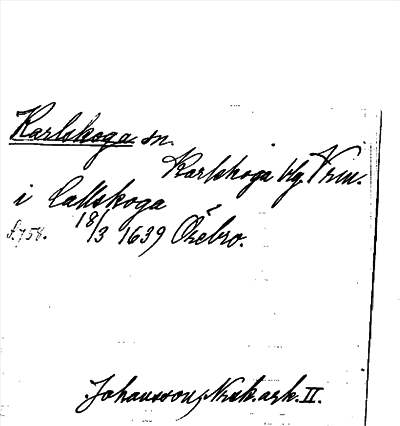 Karlskoga sn.
Karlskoga blg. Vrm.
i Calskoga
f. 758. 18/3 1639 Örebro.
Johansson, Nrk. ark. II.